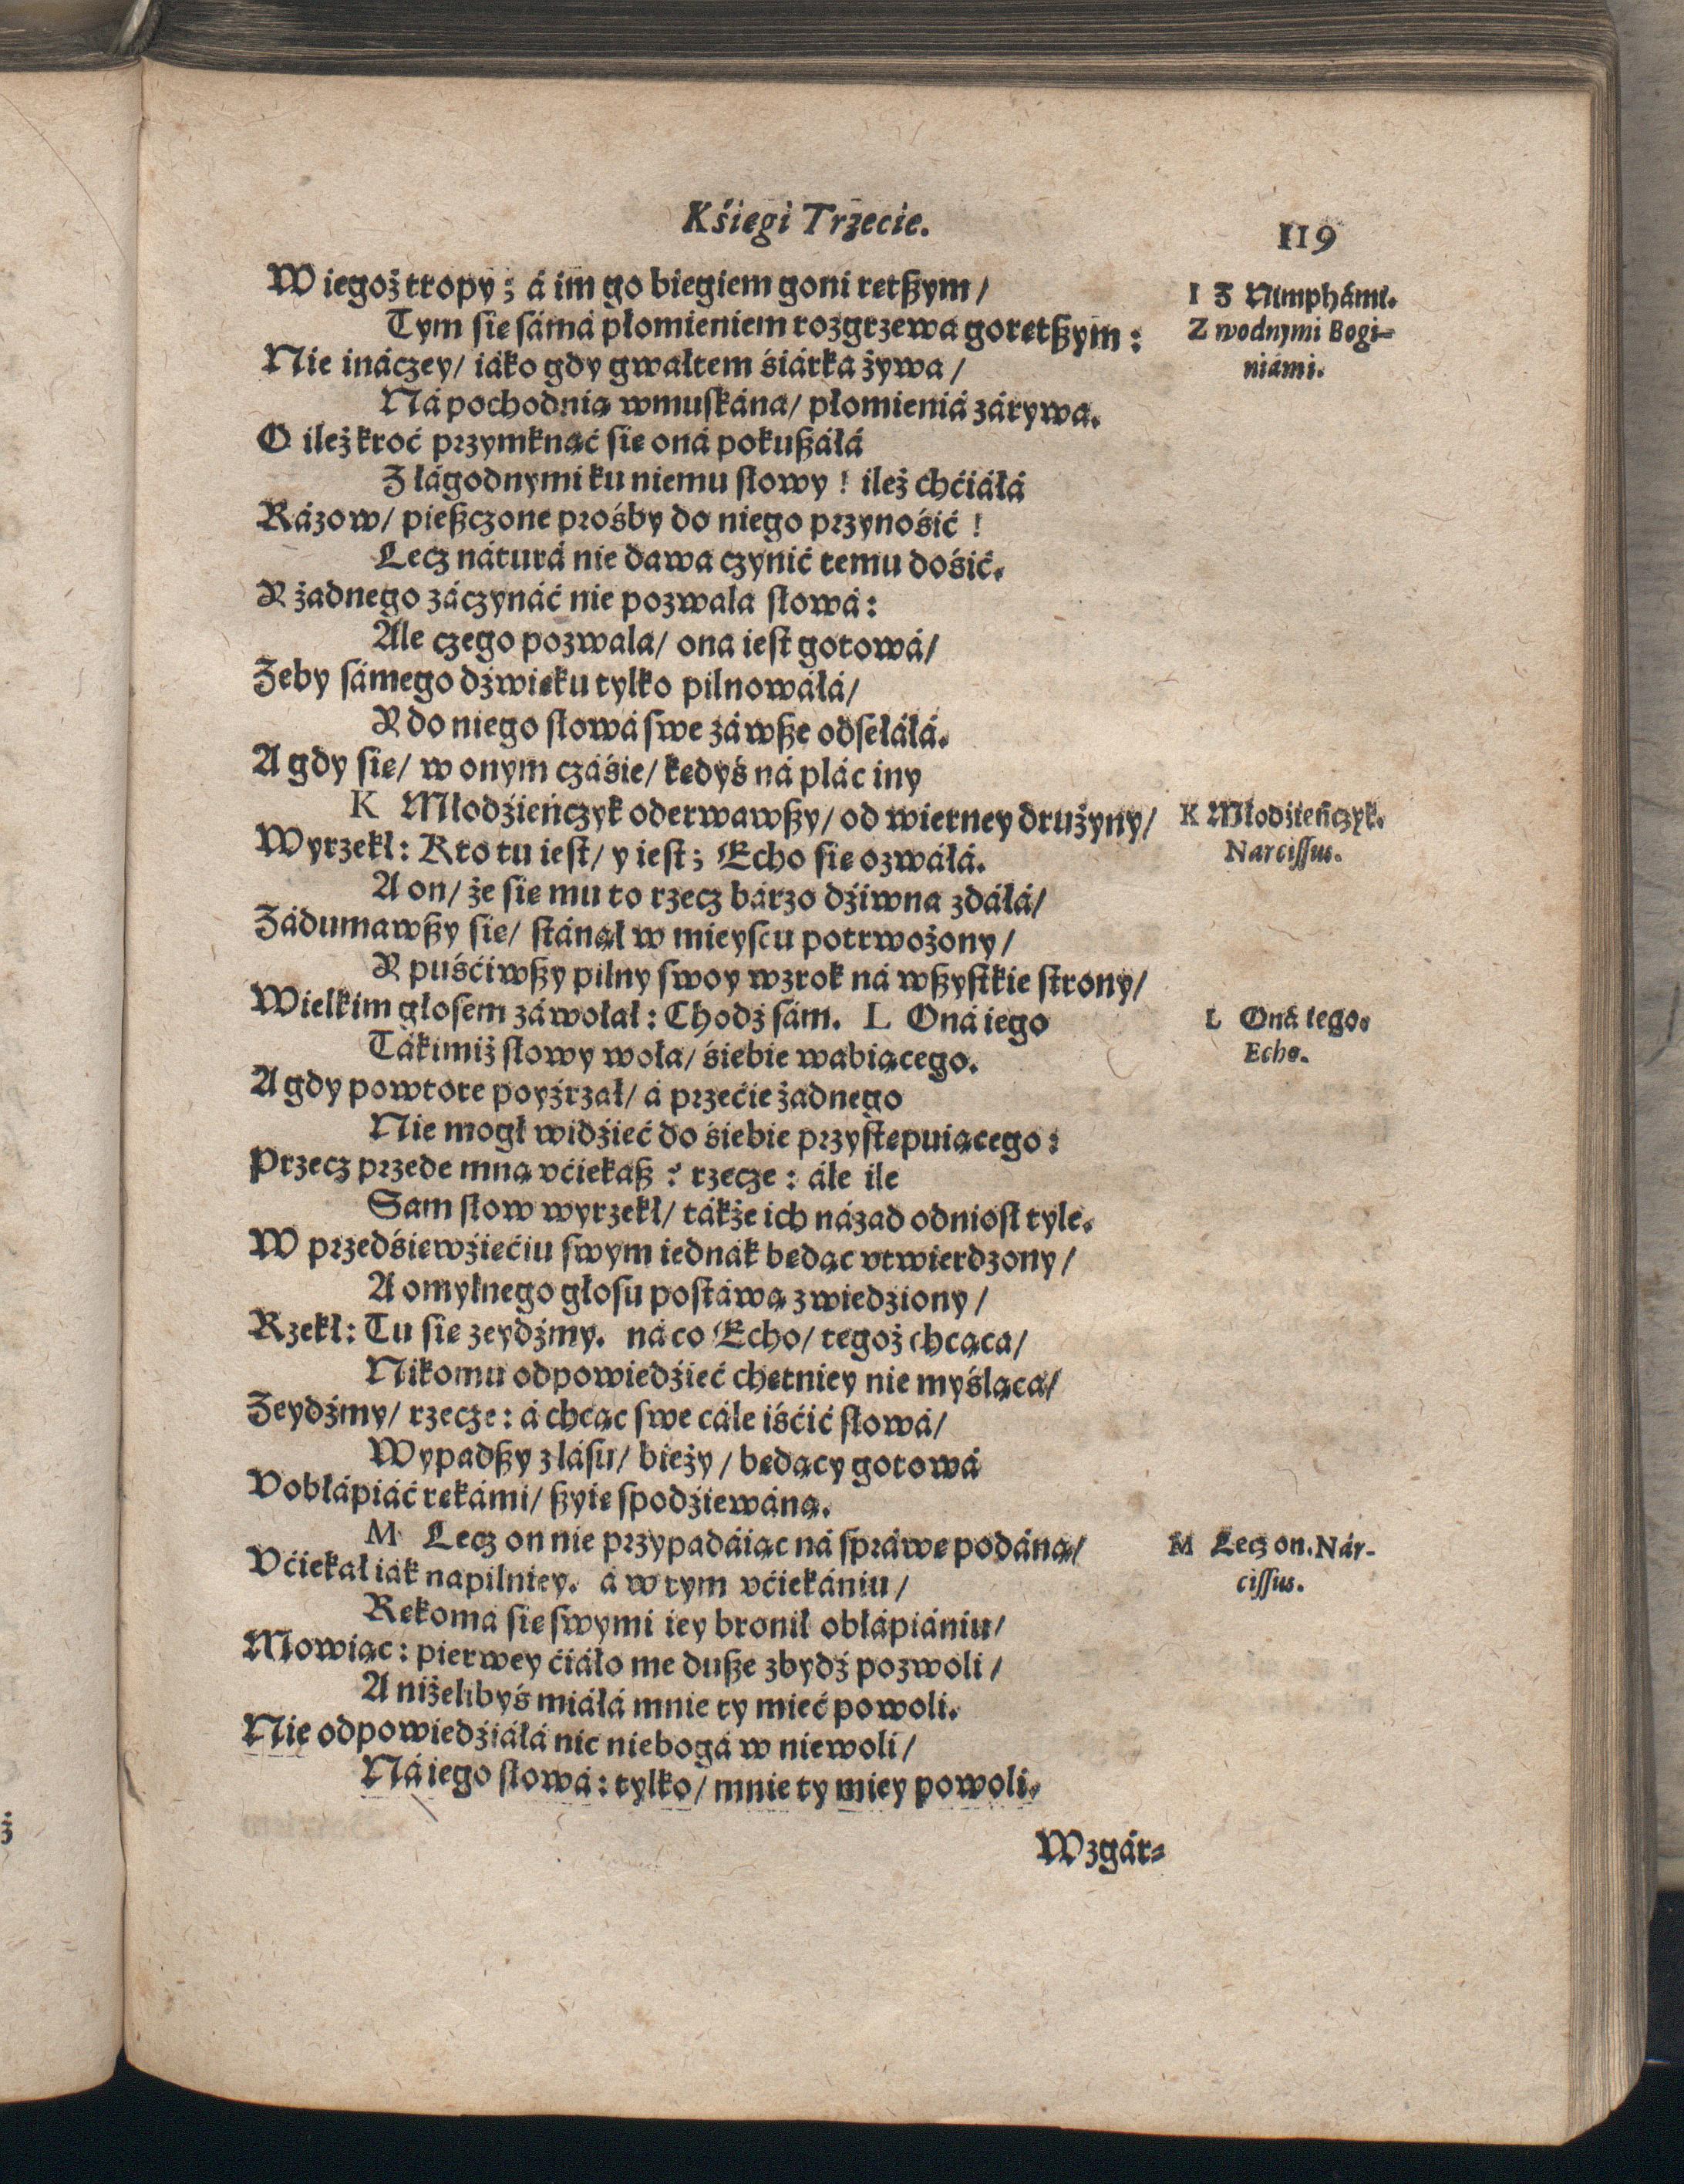 Kśiegi Trzecie.
119
W iegoż tropy; á im go biegiem goni retßym/
Tym sie sámá płomieniem rozgrzewa goretßym:
Nie ináczey/ iáko gdy gwałtem śiárka żywa/
Ná pochodnią wmuskána/ płomieniá zárywa.
O ileż kroć przymknąć sie oná pokußáłá
Z łágodnymi ku niemu słowy! ileż chćiáłá
Rázow/ pießczone prośby do niego przynośić!
Lecz náturá nie dawa czynić temu dośić.
Y żadnego záczynáć nie pozwala słowá:
Ale czego pozwala/ ona iest gotowá/
Żeby sámego dźwięku tylko pilnowáłá/
Y do niego słowá swe záwße odsełáłá.
A gdy sie/ w onym czáśie/ kedyś ná plác iny
K Młodźieńczyk oderwawßy/ od wierney drużyny/
Wyrzekł: Kto tu iest/ y iest; Echo sie ozwáłá.
A on/ że sie mu to rzecz bárzo dźiwna zdáłá/
Zádumawßy sie/ stánął w mieyscu potrwożony/
Y puśćiwßy pilny swoy wzrok ná wßystkie strony/
Wielkim głosem záwołał: Chodź sám. L Oná iego
Tákimiż słowy woła/ śiebie wabiącego.
A gdy powtore poyźrzał/ á przećie żadnego
Nie mogł widźieć do śiebie przystepuiącego:
Przecz przede mną vćiekaß? rzecze: ále ile
Sam słow wyrzekł/ tákże ich názad odniosł tyle.
W przedśiewźiećiu swym iednák bedąc vtwierdzony/
A omylnego głosu postáwą zwiedźiony/
Rzekł: Tu sie zeydźmy. ná co Echo/ tegoż chcąca/
Nikomu odpowiedźieć chetniey nie myśląca/
Zeydźmy/ rzecze: á chcąc swe cále iśćić słowá/
Wypadßy z lásu/ bieży/ bedący gotowá
Vobłápiáć rekámi/ ßyie spodźiewáną.
M Lecz on nie przypadáiąc ná spráwe podáną/
Vćiekał iák napilniey. á w tym vćiekániu/
Rekomá sie swymi iey bronił obłápiániu/
Mowiąc: pierwey ćiáło me duße zbydź pozwoli/
A niżelibyś miáłá mnie ty mieć powoli.
Nie odpowiedźiáłá nic niebogá w niewoli/
Ná iego słowá: tylko/ mnie ty miey powoli.
Wzgár-
I Z Nimphámi.
Z wodnymi Bogi-
niámi.
K Młodźieńczyk.
Narcissus.
L Oná iego.
Echo.
M Lecz on. Nár-
cissus.
ż